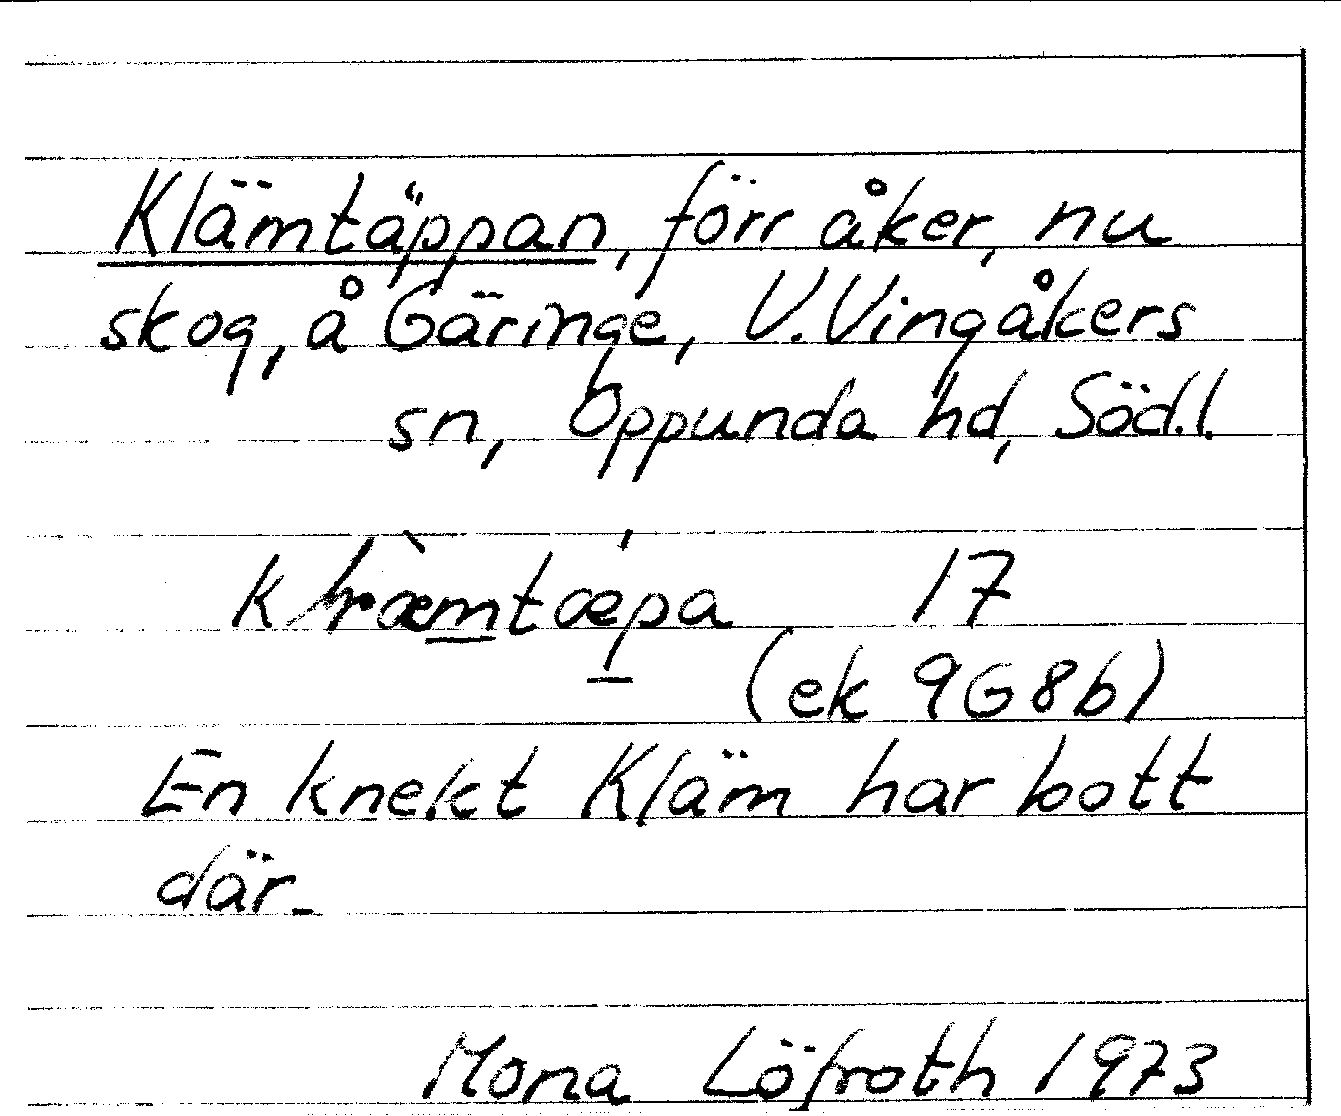 Klämtäppan, förr åker, nu
skog, å Gäringe, V. Vingåkers
sn, Oppunda hd, Söd.l.
17
(ek 9G8b)
En knekt Kläm har bott
där.
Mona Löfroth 1973